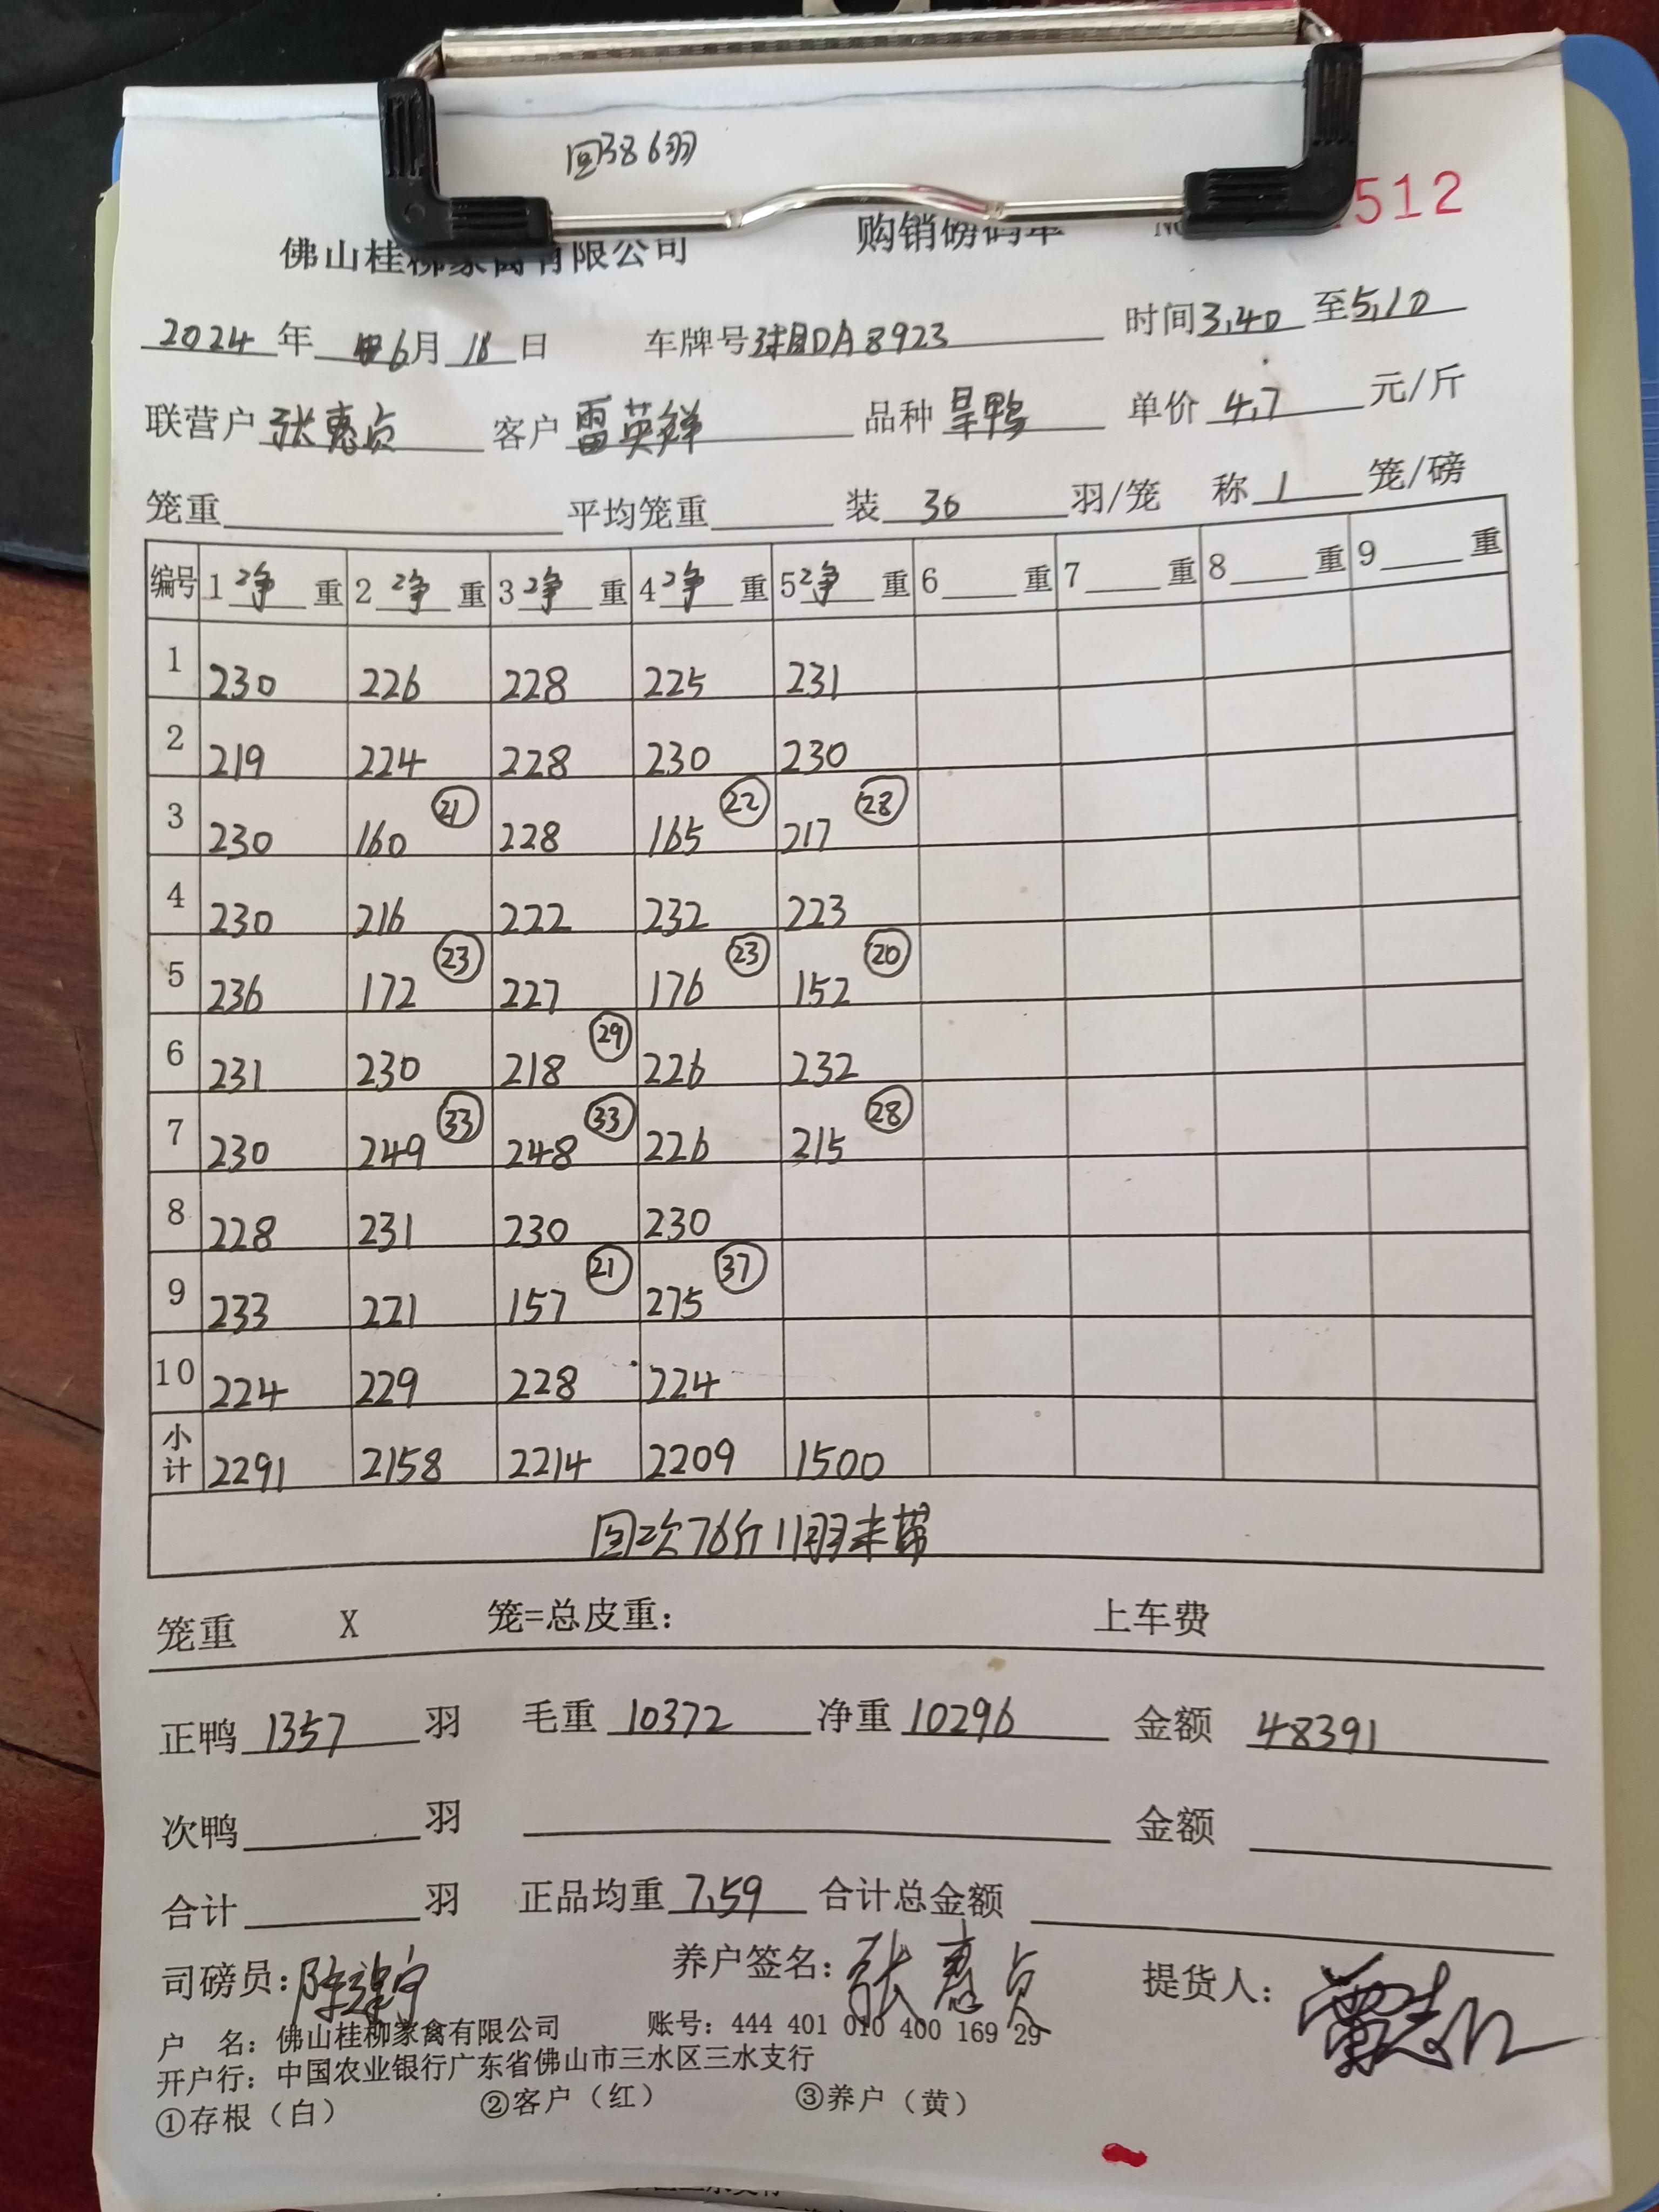 回386羽
佛山桂柳家禽有限公司 购销磅码单 No 512
2024年 6月18日 车牌号 DA8923 时间3.40至5.10
联营户 张惠贞 客户 雷英鲜 品种 旱鸭 单价 4.7 元/斤
笼重 平均笼重 装 30 羽/笼 称 1 笼/磅
编号 1 净 重 2 净 重 3 净 重 4 净 重 5 净 重 6 重 7 重 8 重 9 重
1 230 226 228 225 231
2 219 224 228 230 230
3 230 160 ㉑ 228 165 ㉒ 217 ㉘
4 230 216 222 232 223
5 236 172 ㉓ 227 176 ㉓ 152 ⑳
6 231 230 218 ㉙ 226 232
7 230 249 ㉝ 248 ㉝ 226 215 ㉘
8 228 231 230 230
9 233 221 157 ㉑ 275 ㊲
10 224 229 228 224
小计 2291 2158 2214 2209 1500
回次76斤11羽未带
笼重 X 笼=总皮重: 上车费
正鸭 1357 羽 毛重 10372 净重 10296 金额 48391
次鸭 羽 金额
合计 羽 正品均重 7.59 合计总金额
司磅员: 养户签名: 张惠贞 提货人:
户 名: 佛山桂柳家禽有限公司 账号: 444 401 010 400 169 29
开户行: 中国农业银行广东省佛山市三水区三水支行
①存根（白） ②客户（红） ③养户（黄）